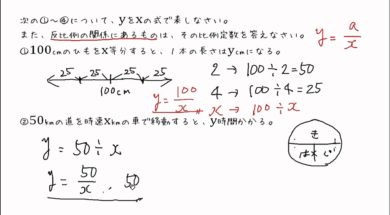 次の①〜④について、yをxの式で表しなさい。
また、反比例の関係にあるものは、その比例定数を答えなさい。
y = a/x
①100cmのひもをx等分すると、1本の長さはycmになる。
25 25 25 25
100cm
2 → 100÷2=50
4 → 100÷4=25
y = 100/x
x → 100÷x
②50kmの道を時速xkmの車で移動すると、y時間かかる。
y = 50÷x
y = 50/x , 50
き
はや じ